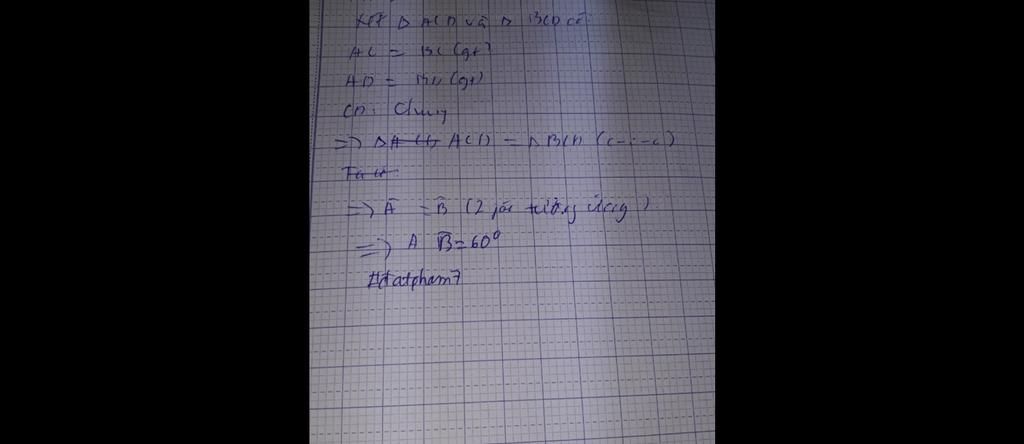 Xét Δ ACD và Δ BCD có:
AC = BC (gt)
AD = BD (gt)
CD: Chung
=> Δ ACD = Δ BCD (c-c-c)
Ta có
=> Â = B̂ (2 góc tương ứng)
=> A B̂ = 60°
#datpham7